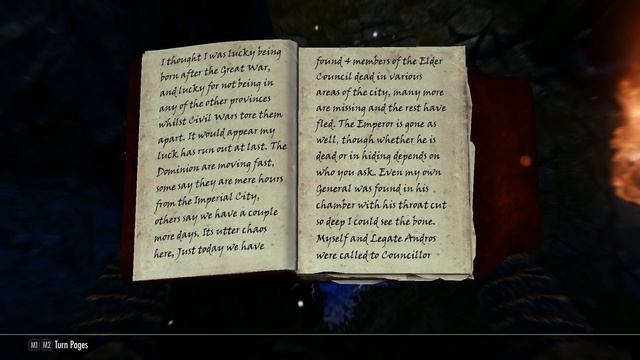 I thought I was lucky being
born after the Great War,
and lucky for not being in
any of the other provinces
whilst Civil Wars tore them
apart. It would appear my
luck has run out at last. The
Dominion are moving fast,
some say they are mere hours
from the Imperial City,
others say we have a couple
more days. Its utter chaos
here, Just today we have
found 4 members of the Elder
Council dead in various
areas of the city, many more
are missing and the rest have
fled. The Emperor is gone as
well, though whether he is
dead or in hiding depends on
who you ask. Even my own
General was found in his
chamber with his throat cut
so deep I could see the bone.
Myself and Legate Andros
were called to Councillor
M1 M2 Turn Pages